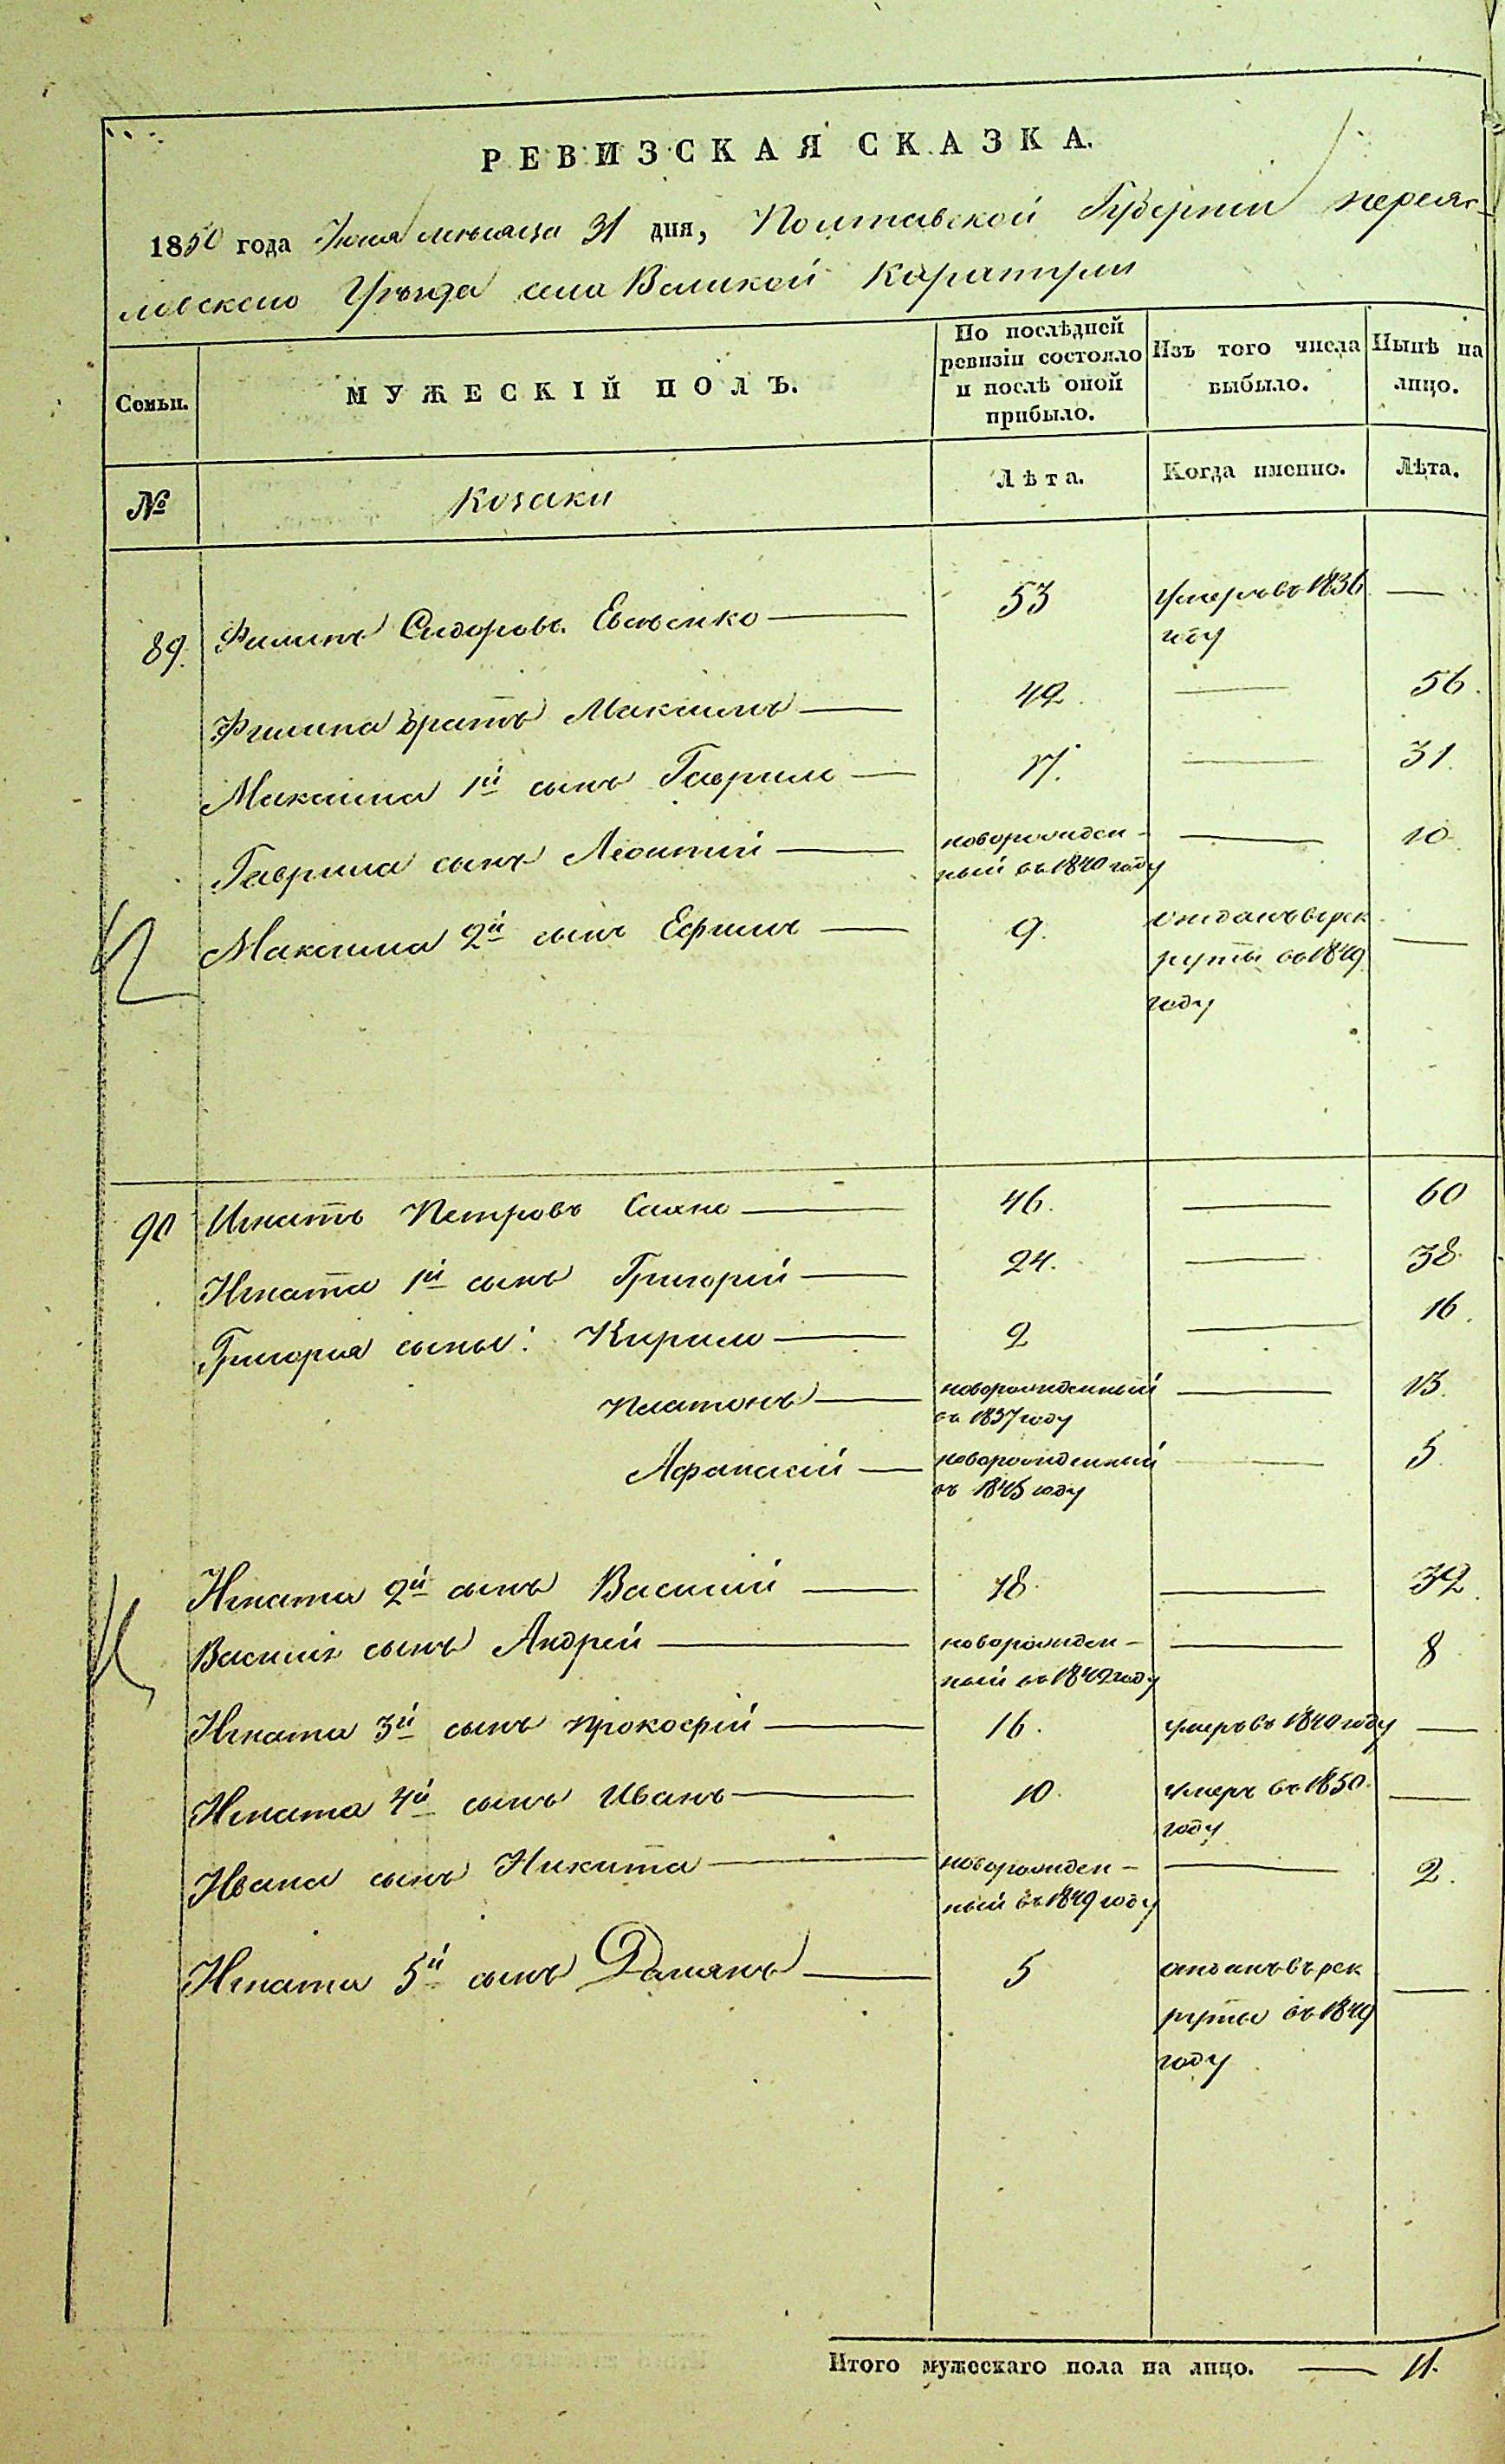 РЕВИЗСКАЯ СКАЗКА.
1850 года Іюля мѣсяца 31 дня, Полтавской Губерніи Переяс-
лавскаго Уѣзда села Великой Каратули
Семьи.
МУЖЕСКІЙ ПОЛЪ.
По послѣдней
ревизіи состояло
и послѣ оной
прибыло.
Изъ того числа
выбыло.
Нынѣ на
лицо.
№
Козаки
Лѣта.
Когда именно.
Лѣта.
89. Филипъ Сидоровъ Евсѣенко — 53 умеръ въ 1836 —
году
Филипа братъ Максимъ — 42. — 56.
Максима 1й сынъ Гаврило — 17. — 31.
Гаврила сынъ Леонтій — новорожден- — 10
ный въ 1840 году
Максима 2й сынъ Ефимъ — 9. отданъ в рек —
руты въ 1849
году
90 Игнатъ Петровъ — 46. — 60
Игната 1й сынъ Григорій — 24. — 38.
Григорія сыны: Кирило — 2 — 16.
Платонъ — новорожденный — 13.
въ 1837 году
Афанасій — новорожденный — 5
въ 1845 году
Игната 2й сынъ Василій — 18. — 32.
Василія сынъ Андрей — новорожден- — 8
ный въ 1842 году
Игната 3й сынъ Прокофій — 16. умеръ въ 1840 году —
Игната 4й сынъ Иванъ — 10. умеръ въ 1850 —
году
Ивана сынъ Никита — новорожден- — 2.
ный въ 1849 году
Игната 5й сынъ Дамянъ — 5 отданъ въ рек —
руты въ 1849
году
Итого мужескаго пола на лицо. — 11.